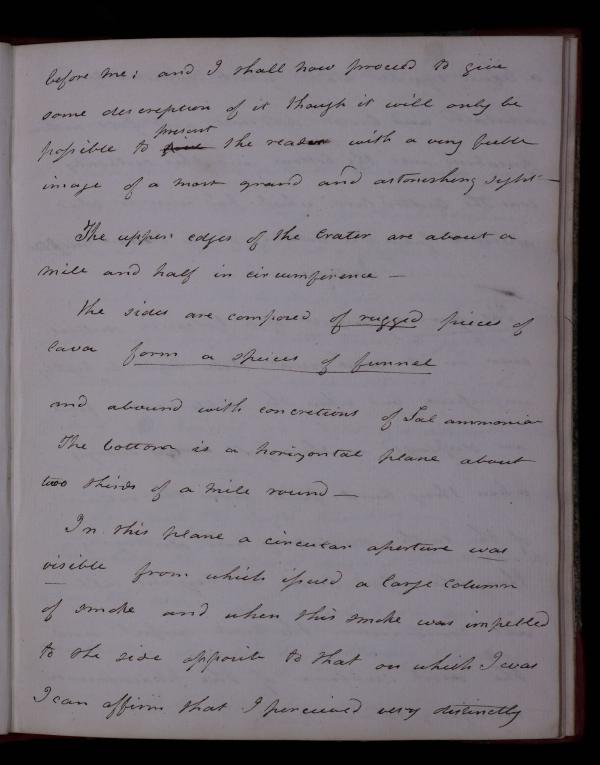 before me; and I shall now proceed to give
some descreption of it though it will only be
present
possible to give the reader with a very feeble
image of a most grand and astonishing sight —
The upper edges of the Crater are about a
mile and half in circumference —
the sides are composed of rugged pieces of
lava form a speices of funnel
and abound with concretions of Sal ammoniac
The bottom is a horizontal plane about
two thirds of a mile round —
In this plane a circular aperture was
visible from which issued a large column
of smoke and when this smoke was impelled
to the side opposite to that on which I was
I can affirm that I perceived very distinctly